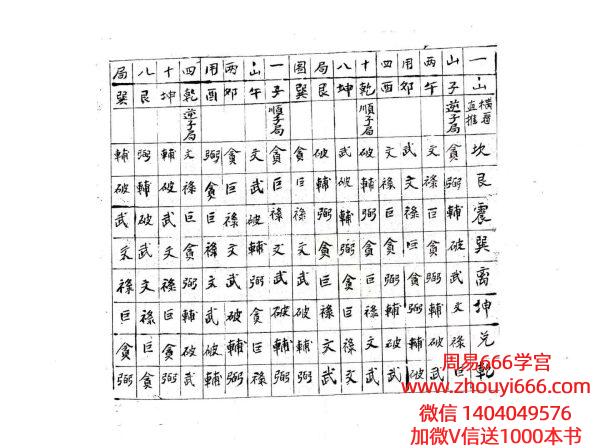 一山橫看直推坎艮震巽离坤兑乾
山子逆子局貪弼輔破武文祿巨
兩午文祿巨貪弼輔破武
用卯武文祿巨貪弼輔破
四酉文祿巨貪弼輔破武
十乾順子局破輔弼貪巨祿文武
八坤武破輔弼貪巨祿文
局艮破輔弼貪巨祿文武
圖巽貪巨祿文武破輔弼
一子順子局貪巨祿文武破輔弼
山午文武破輔弼貪巨祿
兩卯貪巨祿文武破輔弼
用酉弼貪巨祿文武破輔
四乾逆子局文祿巨貪弼輔破武
十坤輔破武文祿巨貪弼
八艮弼輔破武文祿巨貪
局巽輔破武文祿巨貪弼
周易666学宫
www.zhouyi666.com
微信 1404049576
加微V信送1000本书